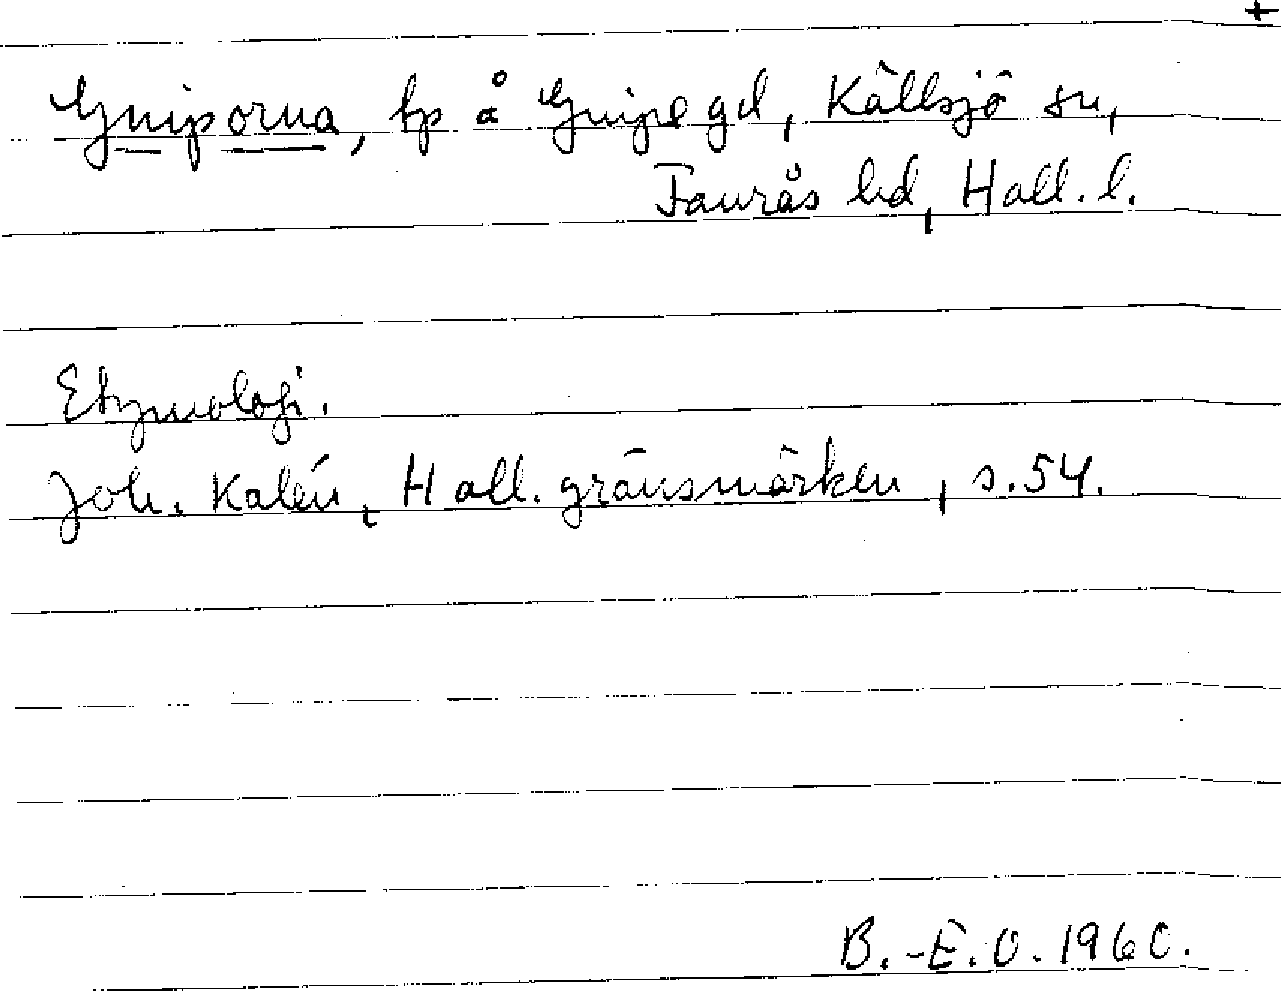 +
Gniporna, tp å Gnipe gd, Källsjö sn,
Faurås hd, Hall. l.
Etymologi.
Joh. Kalén, Hall. gränsmärken, s. 54.
B.-E. O. 1960.